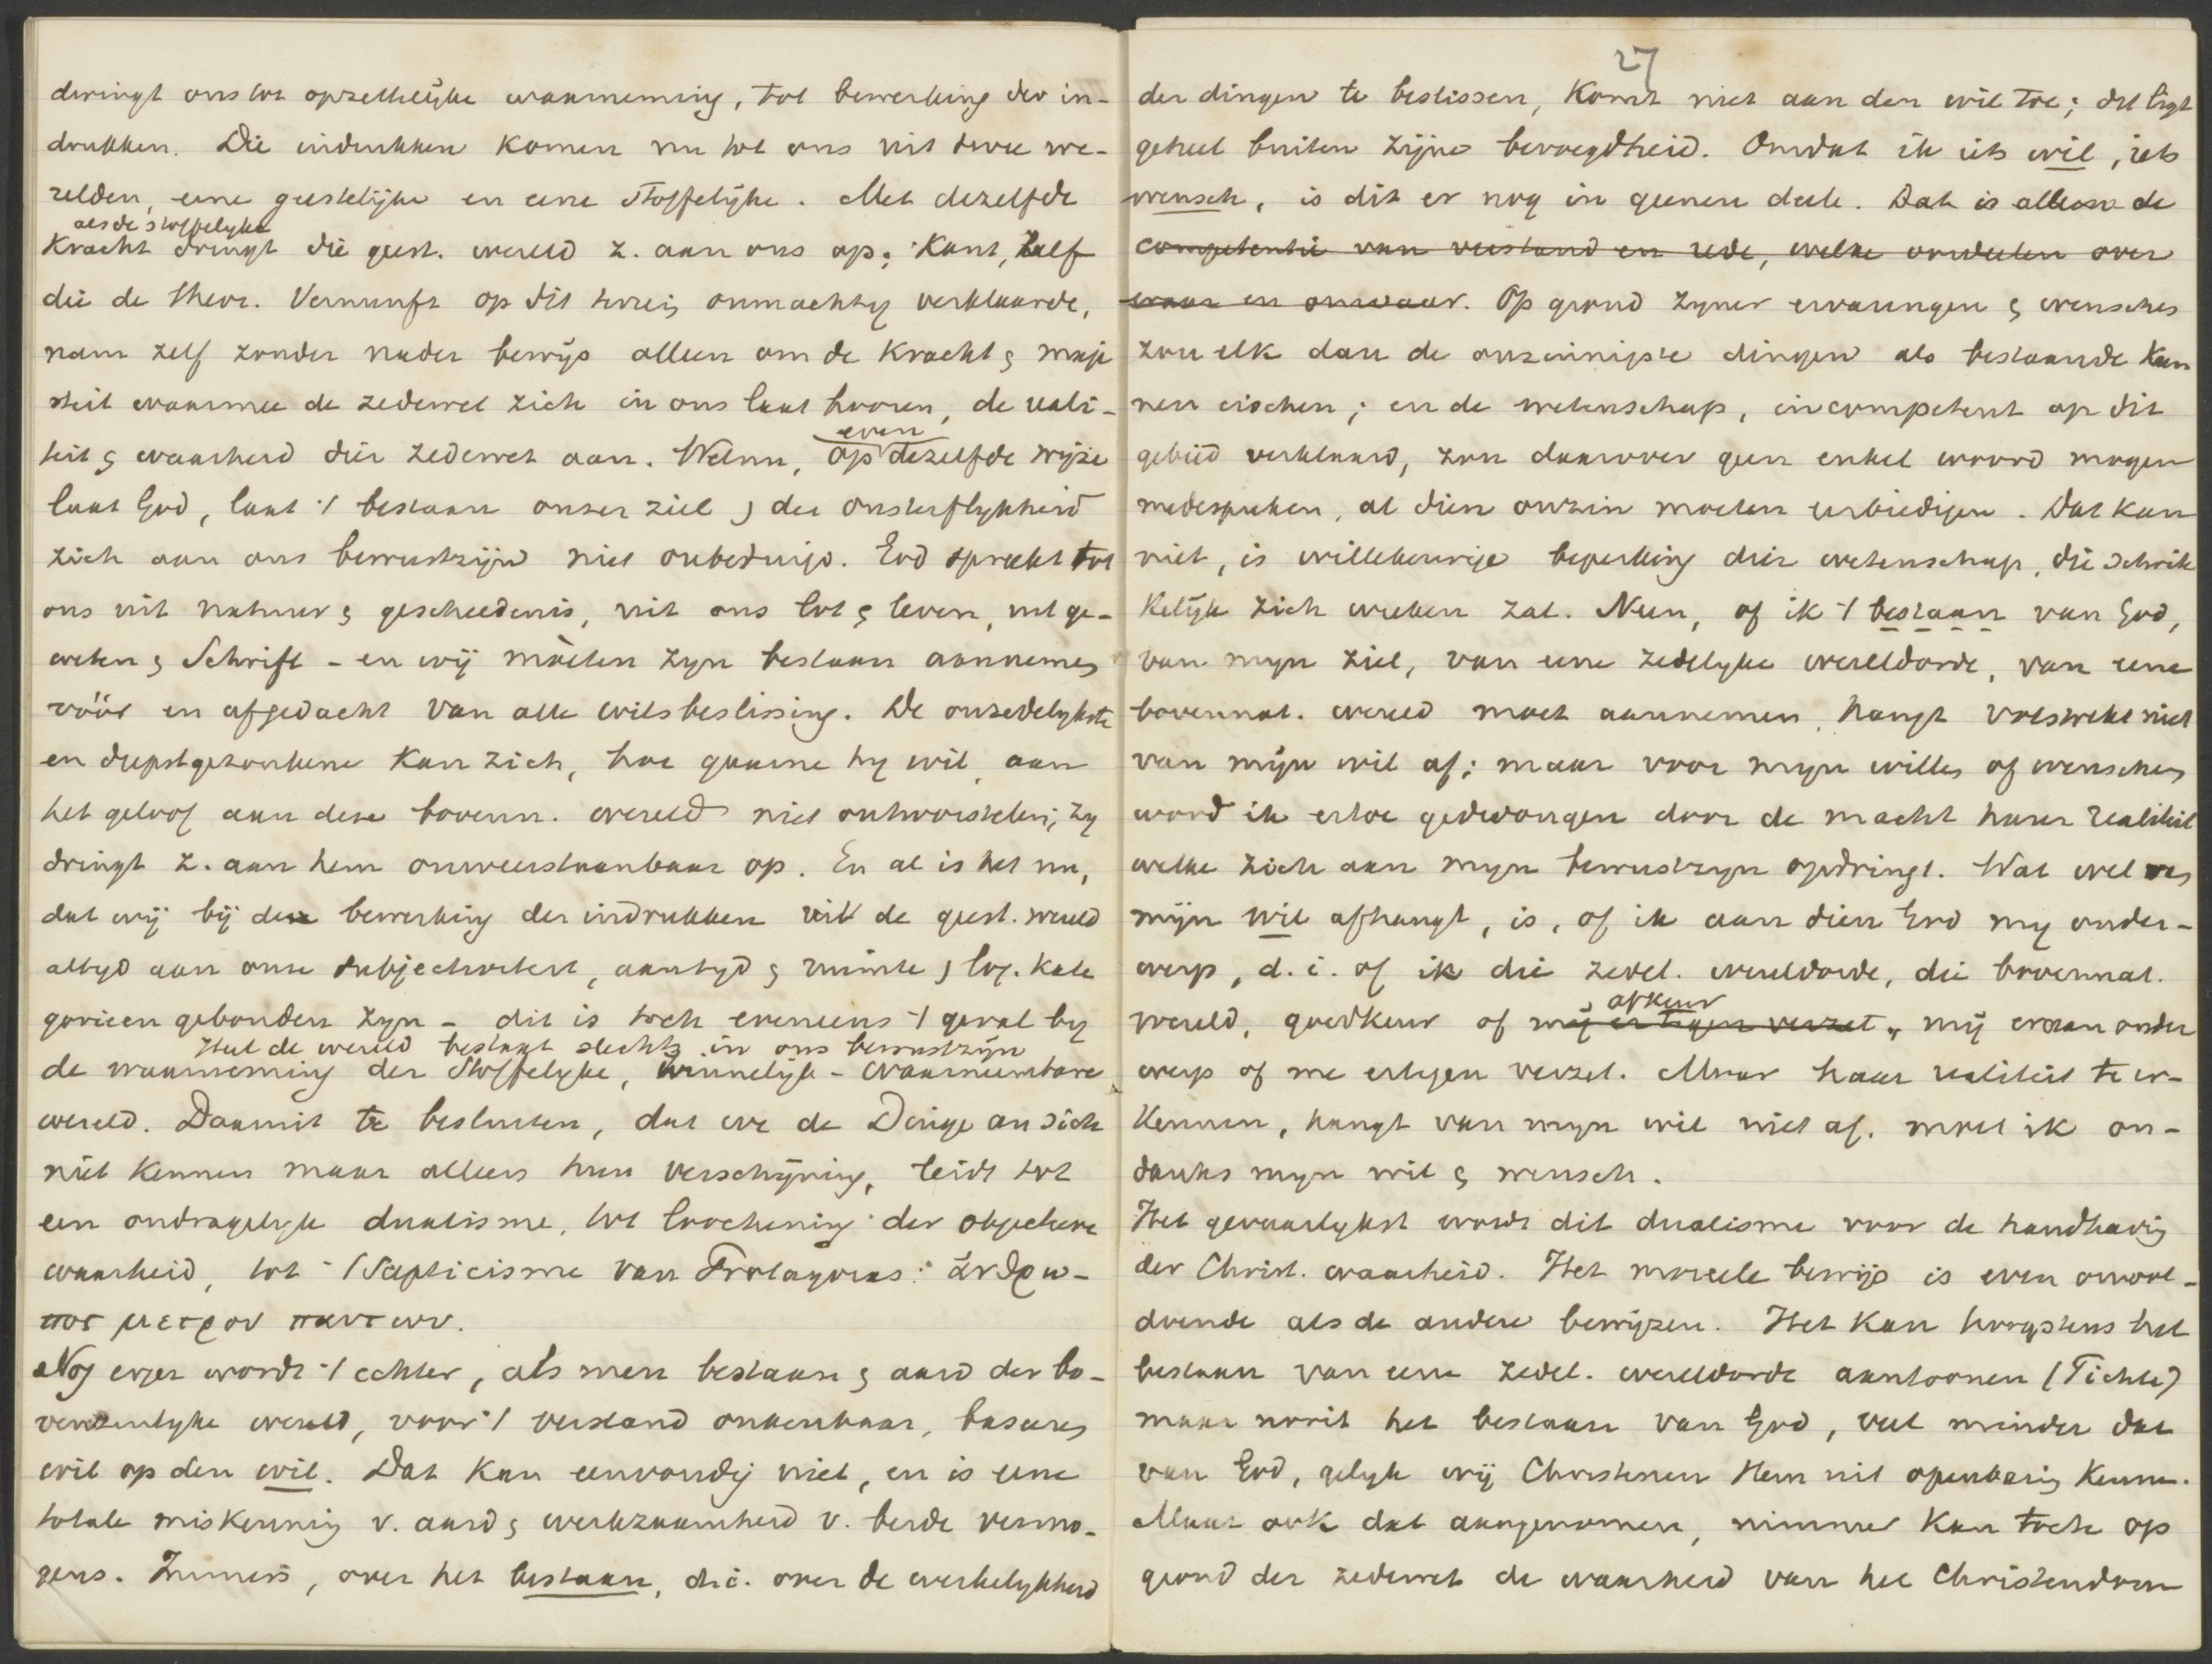 dwingt ons tot opzettelijke waarneming, tot bewerking der in-
drukken. Die indrukken komen nu tot ons uit twee we-
relden, eene geestelijke en eene stoffelijke. Met dezelfde
als de stoffelyke
Kracht dringt die geest. wereld z. aan ons op; Kant, zelf
die de theor. Vernunft op dit terrein onmachtig verklaarde,
nam zelf zonder nader bewijs alleen om de kracht & maje
steit waarmee de zedewet zich in ons laat hooren, de reali-
teit & waarheid dier zedewet aan. Welnu, op dezelfde wijze
even
laat God, laat 't bestaan onzer ziel & der onsterflykheid
zich aan ons bewustzijn niet onbetuigd. God spreekt tot
ons uit natuur & geschiedenis, uit ons lot & leven, uit ge-
weten & Schrift - en wij mòeten zyn bestaan aannemen
vóór en afgedacht van alle wilsbeslissing. De onzedelykste
en diepstgezonkene kan zich, hoe gaarne hy wil, aan
het geloof aan deze bovenn. wereld niet ontworstelen; zy
dringt z. aan hem onweerstaanbaar op. En al is het nu,
dat wij bij deze bewerking der indrukken uit de geest. wereld
altyd aan onze subjectiviteit, aan tyd & ruimte & log. kate
gorieen gebonden zyn - dit is toch eveneens 't geval by
Heel de wereld bestaat slechts in ons bewustzijn
de waarneming der stoffelyke, zinnelijk-waarneembare
wereld. Daaruit te besluiten, dat we de Dinge an sich
niet kennen maar alleen hun verschijning, leidt tot
een ondragelyk dualisme, tot loochening der objectieve
waarheid, tot 't Scepticisme van Protagoras: ἀνθρω-
πος μετρον παντων.
Nog erger wordt 't echter, als men bestaan & aard der bo-
venzinlyke wereld, voor 't verstand onkenbaar, baseren
wil op den wil. Dat kan eenvoudig niet, en is eene
totale miskenning v. aard & werkzaamheid v. beide vermo-
gens. Immers, over het bestaan, d.i. over de werkelykheid
27
der dingen te beslissen, komt niet aan den wil toe; dit ligt
geheel buiten zijne bevoegdheid. Omdat ik iets wil, iets
wensch, is dit er nog in geenen deele. Dat is alleen de
competentie van verstand en rede, welke oordeelen over
waar en onwaar. Op grond zyner ervaringen & wenschen
zou elk dan de onzinnigste dingen als bestaande kun
nen eischen; en de wetenschap, incompetent op dit
gebied verklaard, zou daarover geen enkel woord mogen
medespreken, al dien onzin moeten eerbiedigen. Dat kan
niet, is willekeurige beperking der wetenschap, die schrik
kelijk zich wreken zal. Neen, of ik 't bestaan van God,
van myn ziel, van eene zedelyke wereldorde, van eene
bovennat. wereld moet aannemen, hangt volstrekt niet
van mijn wil af; maar voor myn willen of wenschen
word ik ertoe gedwongen door de macht harer realiteit
welke zich aan myn bewustzyn opdringt. Wat wel van
mijn wil afhangt, is, of ik aan dien God my onder-
werp, d. i. of ik die zedel. wereldorde, die bovennat.
wereld, goedkeur of mij er tegen verzet, mij eraan onder
afkeur
werp of me ertegen verzet. Maar haar realiteit te er-
kennen, hangt van myn wil niet af. moet ik on-
danks myn wil & wensch.
Het gevaarlykst wordt dit dualisme voor de handhaving
der Christ. waarheid. Het moreele bewijs is even onvol-
doende als de andere bewijzen. Het kan hoogstens het
bestaan van eene zedel. wereldorde aantoonen (Fichte)
maar nooit het bestaan van God, veel minder dat
van God, gelyk wij Christenen Hem uit openbaring kennen.
Maar ook dat aangenomen, nimmer kan toch op
grond der zedewet de waarheid van het Christendom